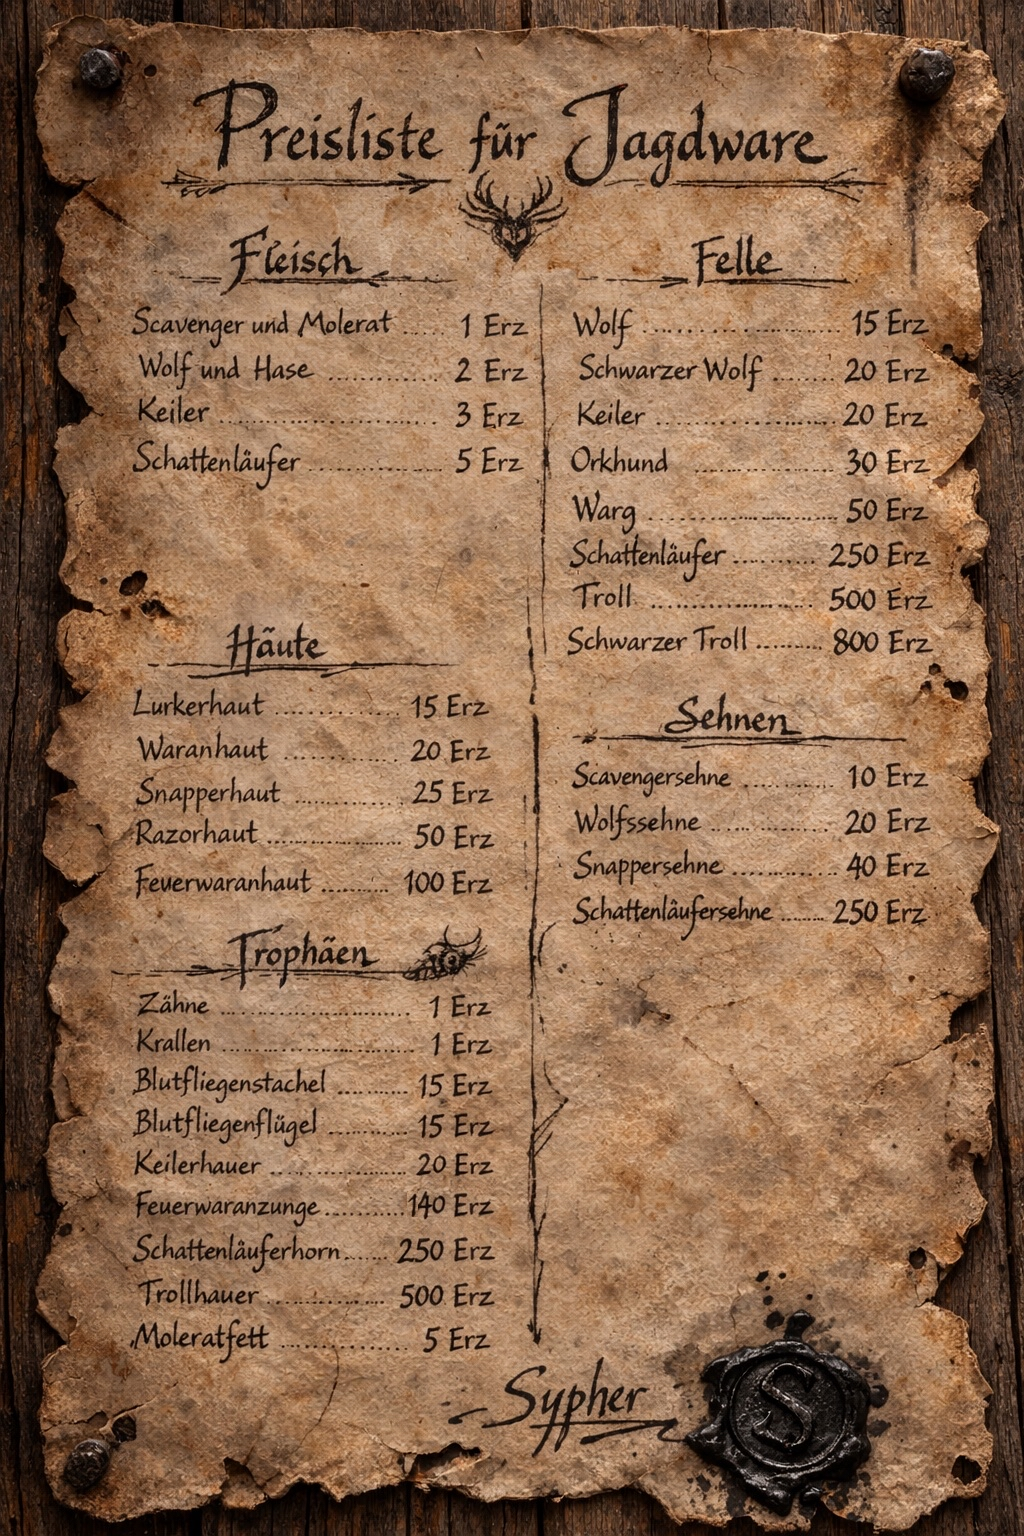 Preisliste für Jagdware
Fleisch
Scavenger und Molerat ..... 1 Erz
Wolf und Hase ............ 2 Erz
Keiler ........................ 3 Erz
Schattenläufer ............... 5 Erz
Felle
Wolf ........................ 15 Erz
Schwarzer Wolf ........ 20 Erz
Keiler ..................... 20 Erz
Orkhund ................ 30 Erz
Warg ..................... 50 Erz
Schattenläufer .......... 250 Erz
Troll ..................... 500 Erz
Schwarzer Troll ......... 800 Erz
Häute
Lurkerhaut .............. 15 Erz
Waranhaut .............. 20 Erz
Snapperhaut ............ 25 Erz
Razorhaut ............... 50 Erz
Feuerwaranhaut .......... 100 Erz
Sehnen
Scavengersehne .......... 10 Erz
Wolfssehne .............. 20 Erz
Snappersehne ............ 40 Erz
Schattenläufersehne ....... 250 Erz
Trophäen
Zähne ......................... 1 Erz
Krallen ........................ 1 Erz
Blutfliegenstachel .......... 15 Erz
Blutfliegenflügel ........... 15 Erz
Keilerhauer .................. 20 Erz
Feuerwaranzunge ............ 140 Erz
Schattenläuferhorn ....... 250 Erz
Trollhauer ................ 500 Erz
Moleratfett ................ 5 Erz
Sypher
S